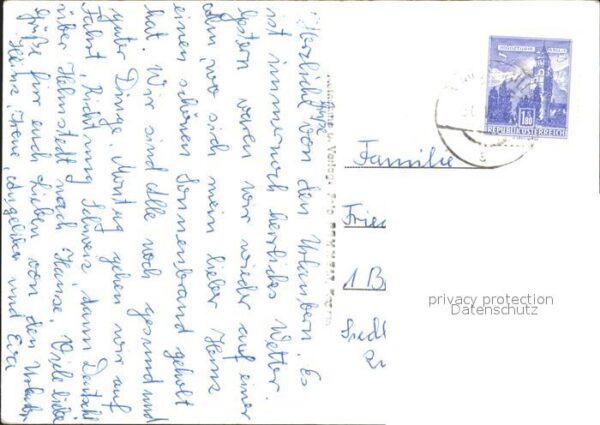 Herzliche Grüße
von den Urlaubern. Es
ist immernoch herrliches Wetter.
Gestern waren wir wieder auf einer
Alm, wo sich mein lieber Heinz
einen schönen Sonnenbrand geholt
hat. Wir sind Alle noch gesund und
guter Dinge. Montag gehen wir auf
Fahrt, Richtung Schweiz dann Deutschl
über Helmstedt nach Hause. Viele liebe
Grüße für euch Lieben von den Urlauber
Heinz, Irene, Angelika und Eva
MÜNZTURM
REPUBLIK ÖSTERREICH
1.80
Familie
Fried
1 B
Siedl
privacy protection
Datenschutz